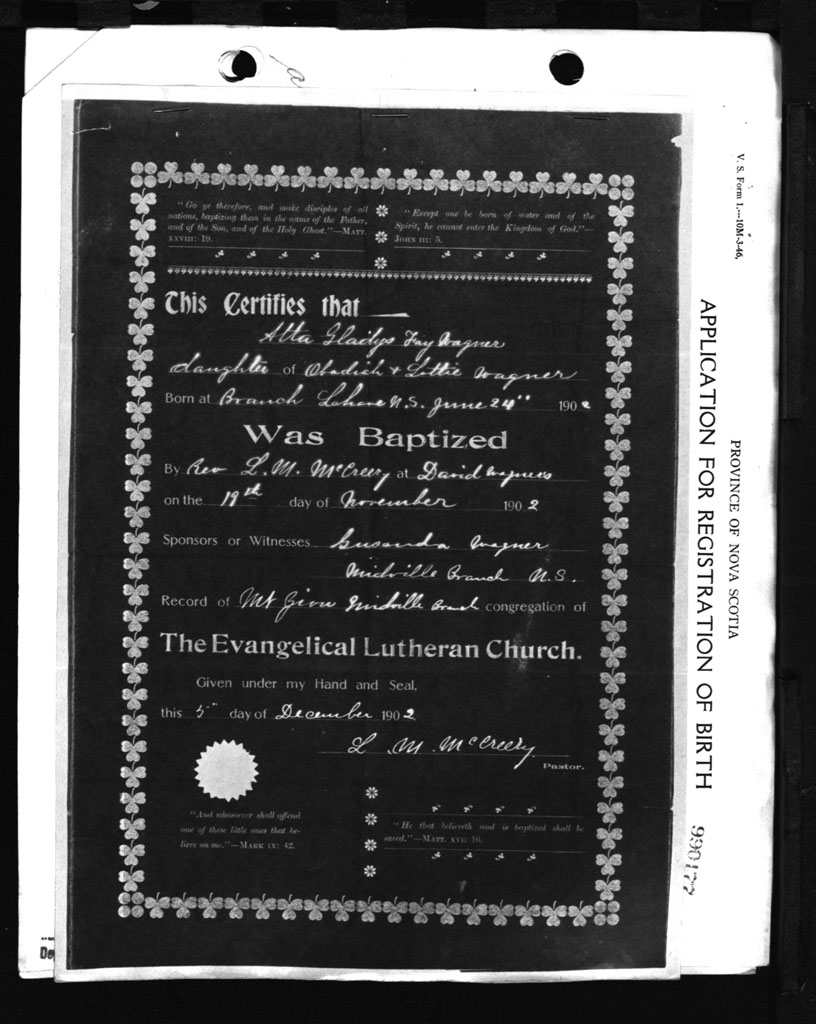 "Go ye therefore, and make disciples of all
nations, baptizing them in the name of the Father,
and of the Son, and of the Holy Ghost."—MATT.
XXVIII: 19.
"Except one be born of water and of the
Spirit, he cannot enter the Kingdom of God."—
JOHN III: 5.
This Certifies that
Atta Gladys Fay Wagner
daughter of Obadiah & Lottie Wagner
Born at Branch Lahave N.S. June 24" 1902
Was Baptized
By Rev L. M. McCreery at David Wagners
on the 19th day of November 1902
Sponsors or Witnesses Wagner
Midville Branch N.S.
Record of Mt Midville Branch congregation of
The Evangelical Lutheran Church.
Given under my Hand and Seal,
this 5" day of December 1902
L. M. McCreery
Pastor.
"And whosoever shall offend
one of these little ones that be-
lieve on me."—MARK IX: 42.
"He that believeth and is baptized shall be
saved."—MATT. XVI: 16.
V. S. Form 1.—10M-3-46.
PROVINCE OF NOVA SCOTIA
APPLICATION FOR REGISTRATION OF BIRTH
990177